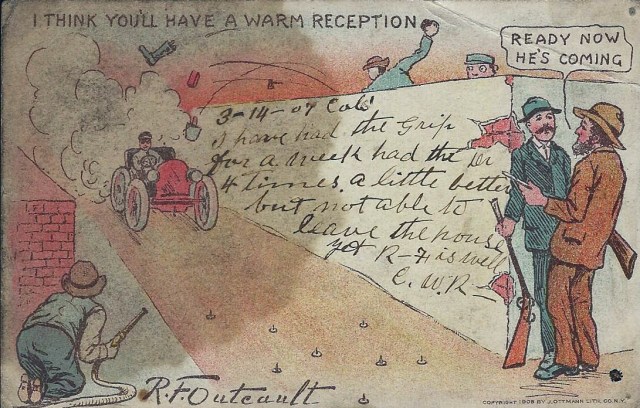 I THINK YOU'LL HAVE A WARM RECEPTION
READY NOW
HE'S COMING
3-14-07
I have had the Grip
for a week had the Dr
4 times. a little better
but not able to
leave the house
yet R-7 is well
C. W. R-
R.F. Outcault
COPYRIGHT 1906 BY J. OTTMANN LITH. CO. N.Y.